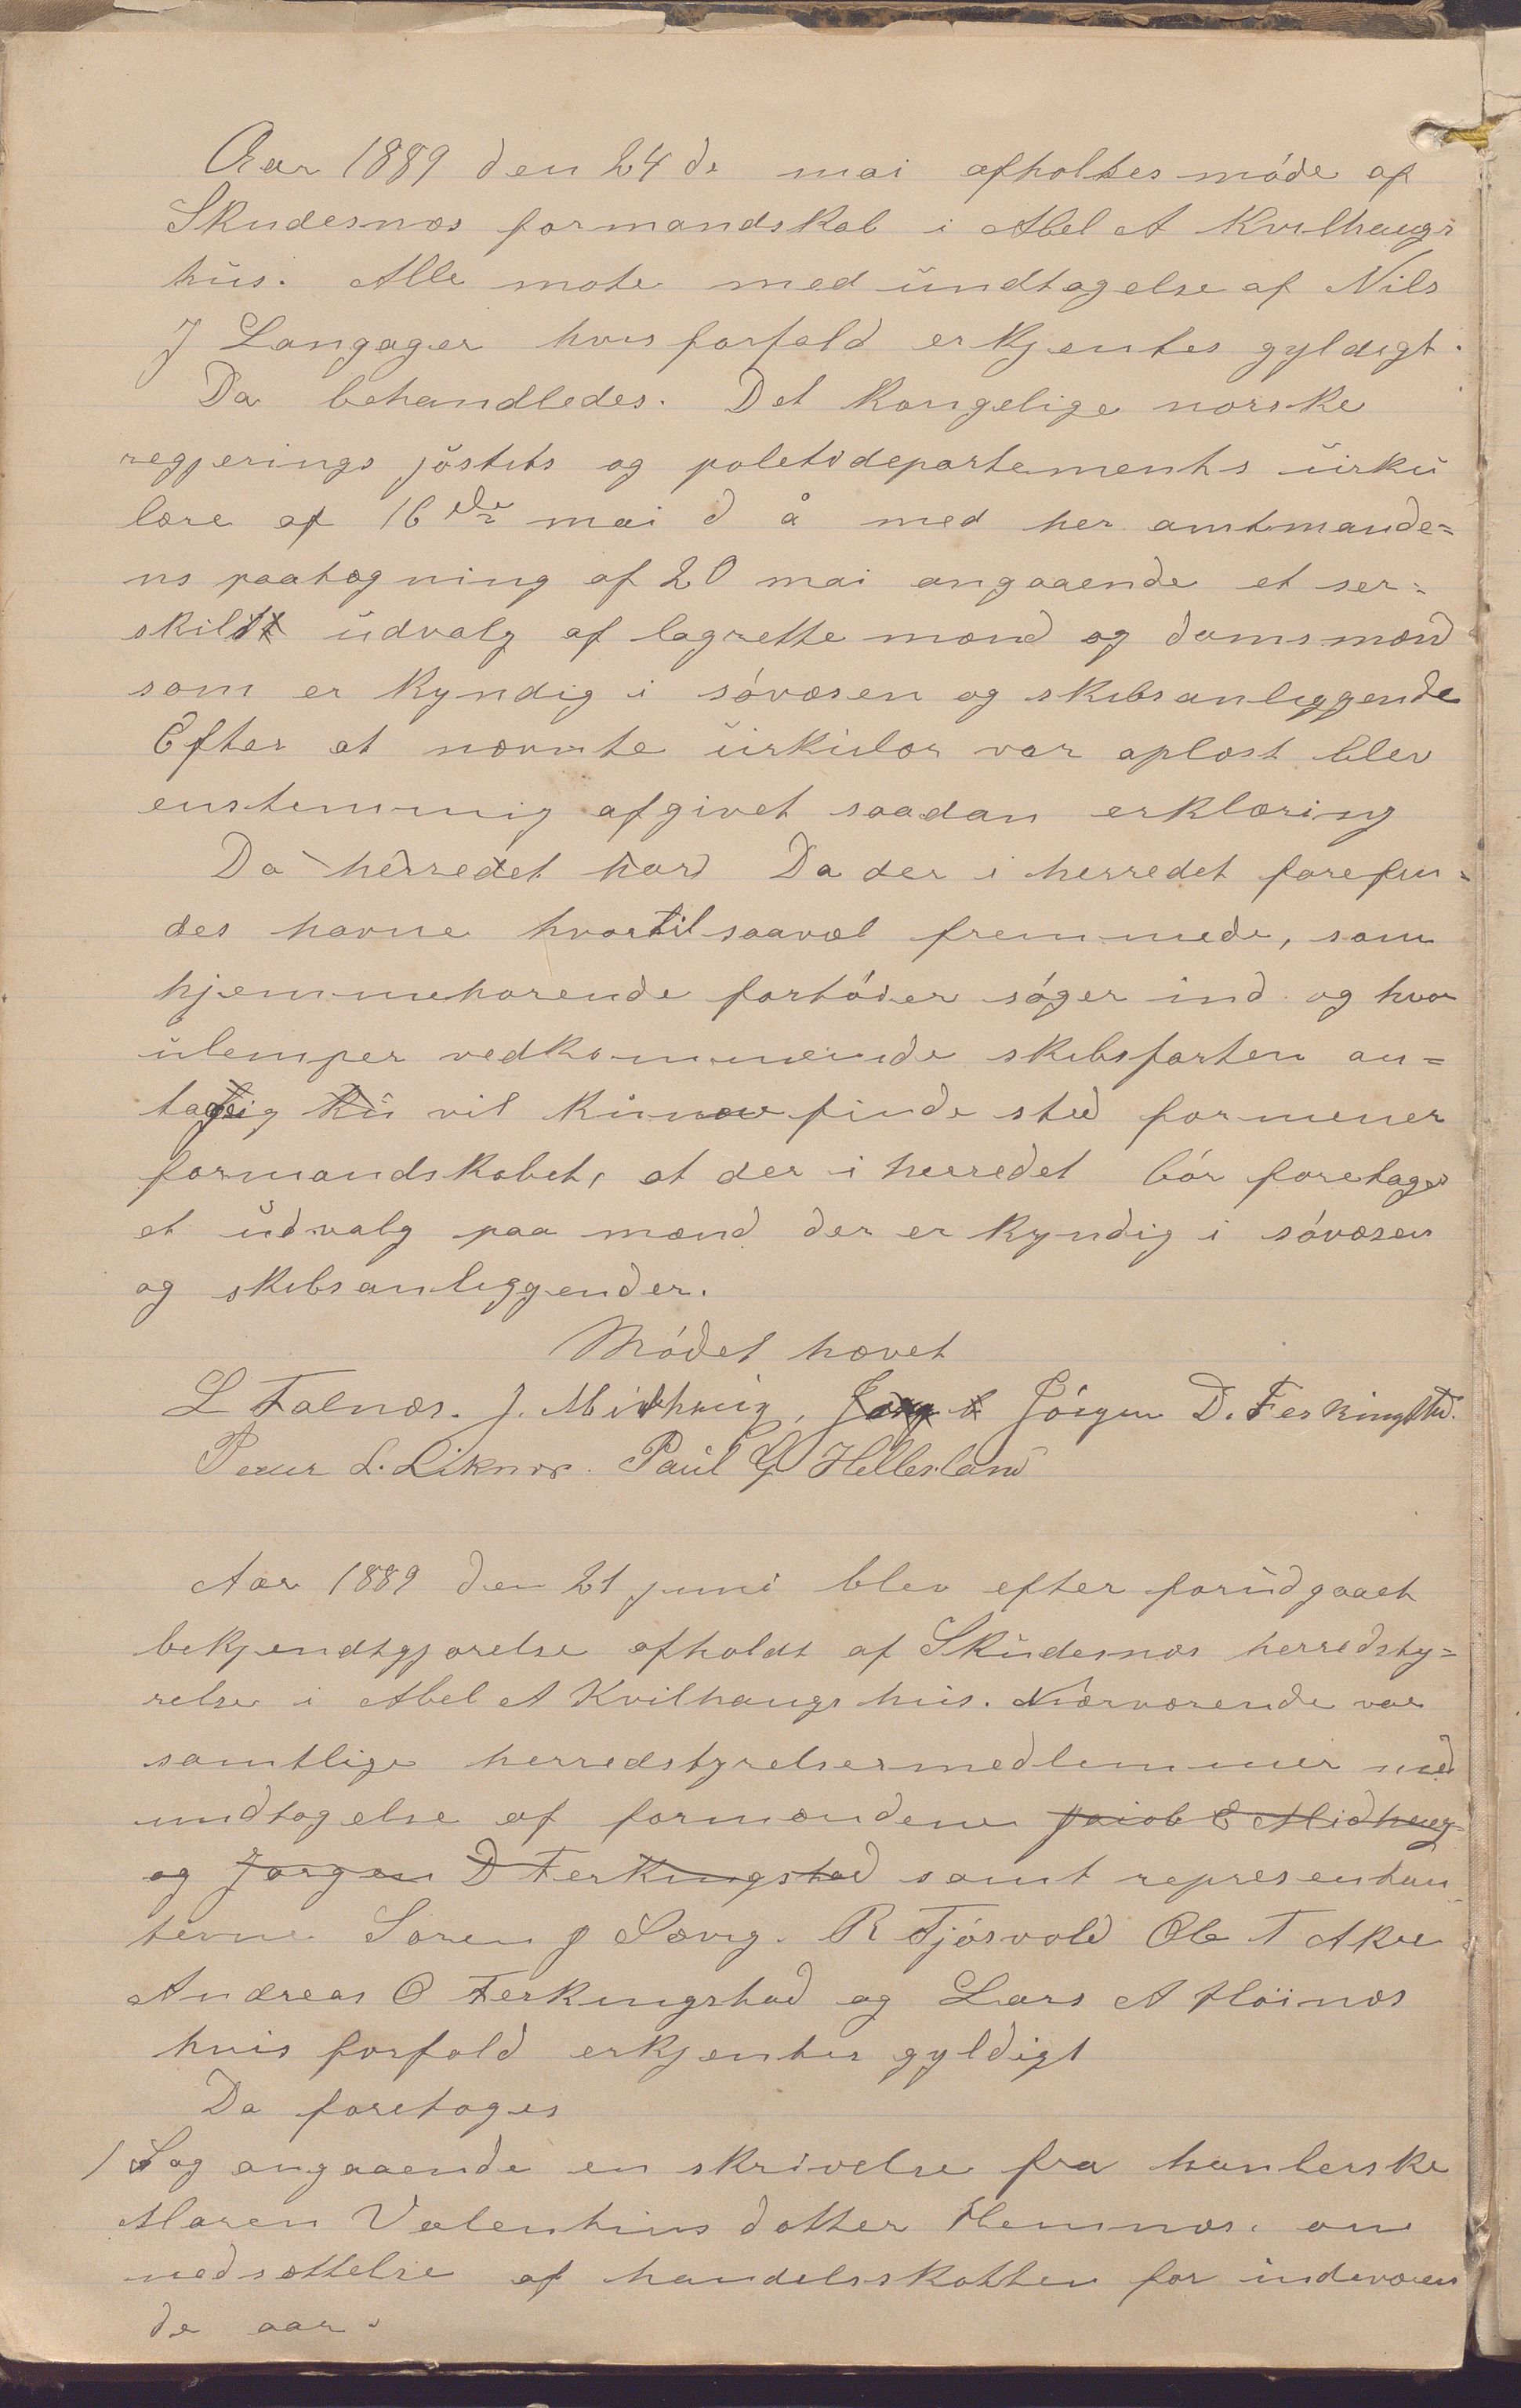 Aar 1889 den 24de mai afholtes møde af
Skudesnæs formandskab i Abel A Kvilhaugs
hus. Alle møte med undtagelse af Nils
J Langager hvis forfald erkjentes gyldigt.
Da behandledes. Det kongelige norske
regjerings justits og politidepartements sirku
lære af 16de mai d å med her amtmande=
ns paategning af 20 mai angaaende et ser=
skilt udvalg af lagrette mænd og domsmænd
som er kyndig i søvæsen og skibsanliggende
Efter at nævnte sirkulær var oplæst blev
enstemmig afgivet saadan erklæring
Da herredet har Da der i herredet forefin=
des havne hvortil saavæl fremmede, som
hjemmehørende fartøier søger ind og hvor
ulemper vedkommende skibsfarten an=
tagelig ku vil kunne finde sted formener
formandskabet, at der i herredet bør foretages
et udvalg paa mænd der er kyndig i søvæsen
og skibsanliggender.
Mødet hævet
L Falnæs. J. Midhaug, Jørgen D. Ferkingstad.
Peder L. Liknæs. Paul G Hellesland
Aar 1889 den 21 juni blev efter forudgaaet
bekjendtgjørelse afholdt af Skudesnæs herredsty=
relse i Abel A Kvilhaugs hus. Nærværende var
samtlige herredstyrelsesmedlemmer med
undtagelse af formændene Jacob E Midhaug
og Jørgen D Ferkingstad samt representan
terne Søren J Sævig. R Tjøsvold Ole T Akre
Andreas O Ferkingstad og Lars A Høinæs
hvis forfald erkjentes gyldigt
Da foretoges
1 Sag angaaende en skrivelse fra hanlerske
Maren Valentinsdatter Hemnæs. om
nedsættelse af handelsskatten for indeværen
de aar.